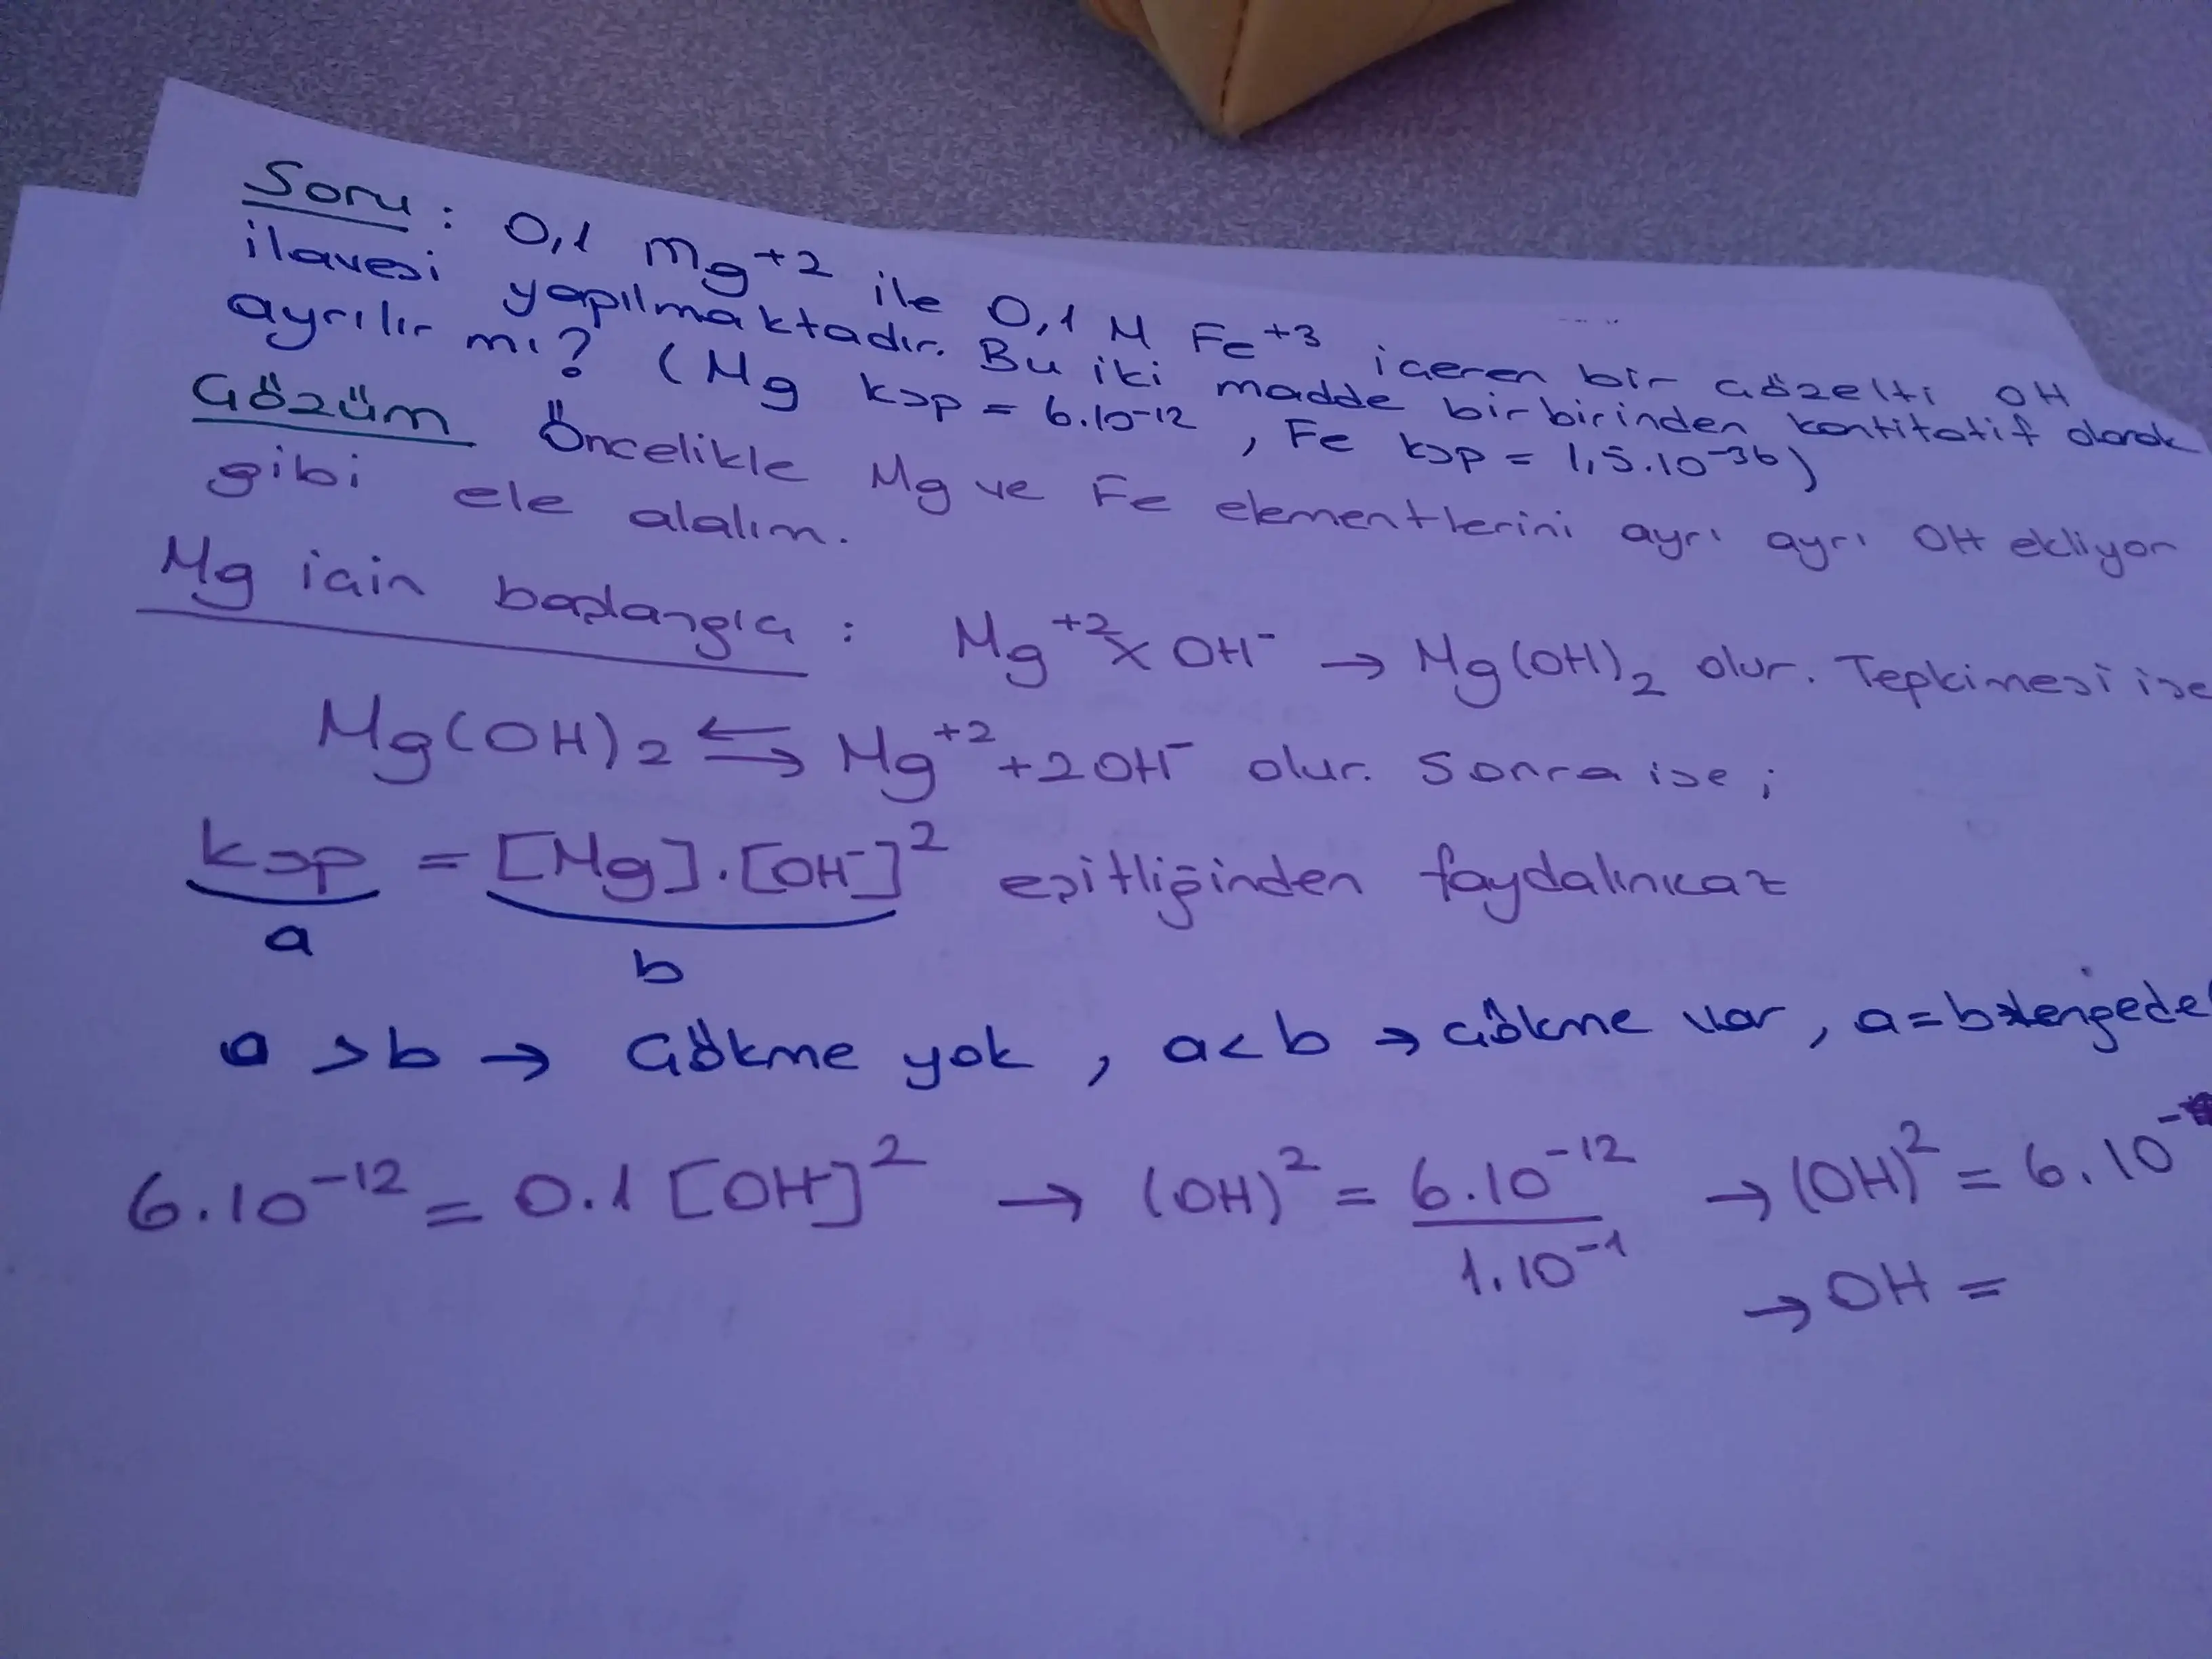 Soru : 0,1 Mg+2 ile 0,1 M Fe+3 içeren bir çözelti OH
ilavesi yapılmaktadır. Bu iki madde birbirinden kantitatif olarak
ayrılır mı? (Mg ksp = 6.10-12 , Fe ksp = 1,5.10-36)
Çözüm Öncelikle Mg ve Fe elementlerini ayrı ayrı OH ekliyor
gibi ele alalım.
Mg için başlangıç : Mg+2 x OH- → Mg(OH)2 olur. Tepkimesi ise
Mg(OH)2 ⇌ Mg+2 + 2OH- olur. Sonra ise ;
ksp = [Mg].[OH-]2 eşitliğinden faydalınıcaz
a b
a > b → Çökme yok , a < b → Çökme var , a = b dengede
6.10-12 = 0.1 [OH]2 → (OH)2 = 6.10-12 / 1.10-1 → (OH)2 = 6.10-
→ OH =